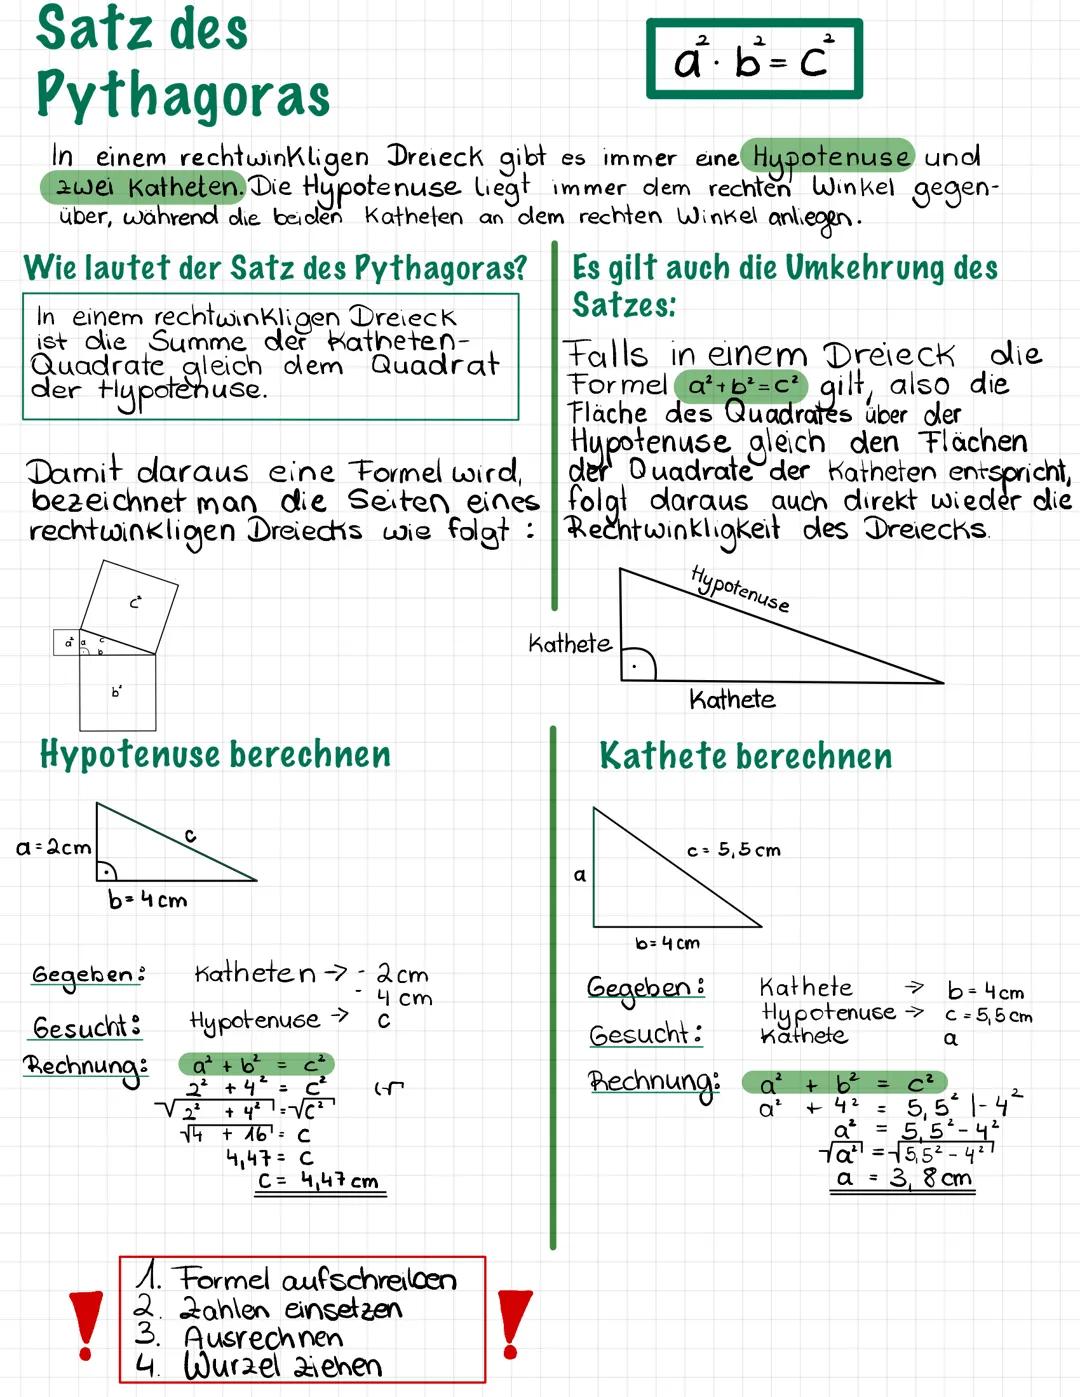 Satz des
Pythagoras
a² · b² = c²
In einem rechtwinkligen Dreieck gibt es immer eine Hypotenuse und
zwei Katheten. Die Hypotenuse liegt immer dem rechten Winkel gegen-
über, während die beiden Katheten an dem rechten Winkel anliegen.
Wie lautet der Satz des Pythagoras?
In einem rechtwinkligen Dreieck
ist die Summe der Katheten-
Quadrate gleich dem Quadrat
der Hypotenuse.
Damit daraus eine Formel wird,
bezeichnet man die Seiten eines
rechtwinkligen Dreiecks wie folgt :
c²
a² a c
b
b²
Es gilt auch die Umkehrung des
Satzes:
Falls in einem Dreieck die
Formel a² + b² = c² gilt, also die
Fläche des Quadrates über der
Hypotenuse gleich den Flächen
der Quadrate der Katheten entspricht,
folgt daraus auch direkt wieder die
Rechtwinkligkeit des Dreiecks.
Hypotenuse
Kathete
Kathete
Hypotenuse berechnen
c
a = 2cm
b = 4 cm
Gegeben: Katheten → - 2 cm
- 4 cm
Gesucht: Hypotenuse → c
Rechnung: a² + b² = c²
2² + 4² = c² |√
√2² + 4² = √c²
√4 + 16 = c
4,47 = c
c = 4,47 cm
Kathete berechnen
c = 5,5 cm
a
b = 4 cm
Gegeben: Kathete → b = 4 cm
Hypotenuse → c = 5,5 cm
Gesucht: Kathete a
Rechnung: a² + b² = c²
a² + 4² = 5,5² |- 4²
a² = 5,5² - 4²
√a² = √5,5² - 4²
a = 3,8 cm
! 1. Formel aufschreiben !
2. Zahlen einsetzen
3. Ausrechnen
4. Wurzel ziehen